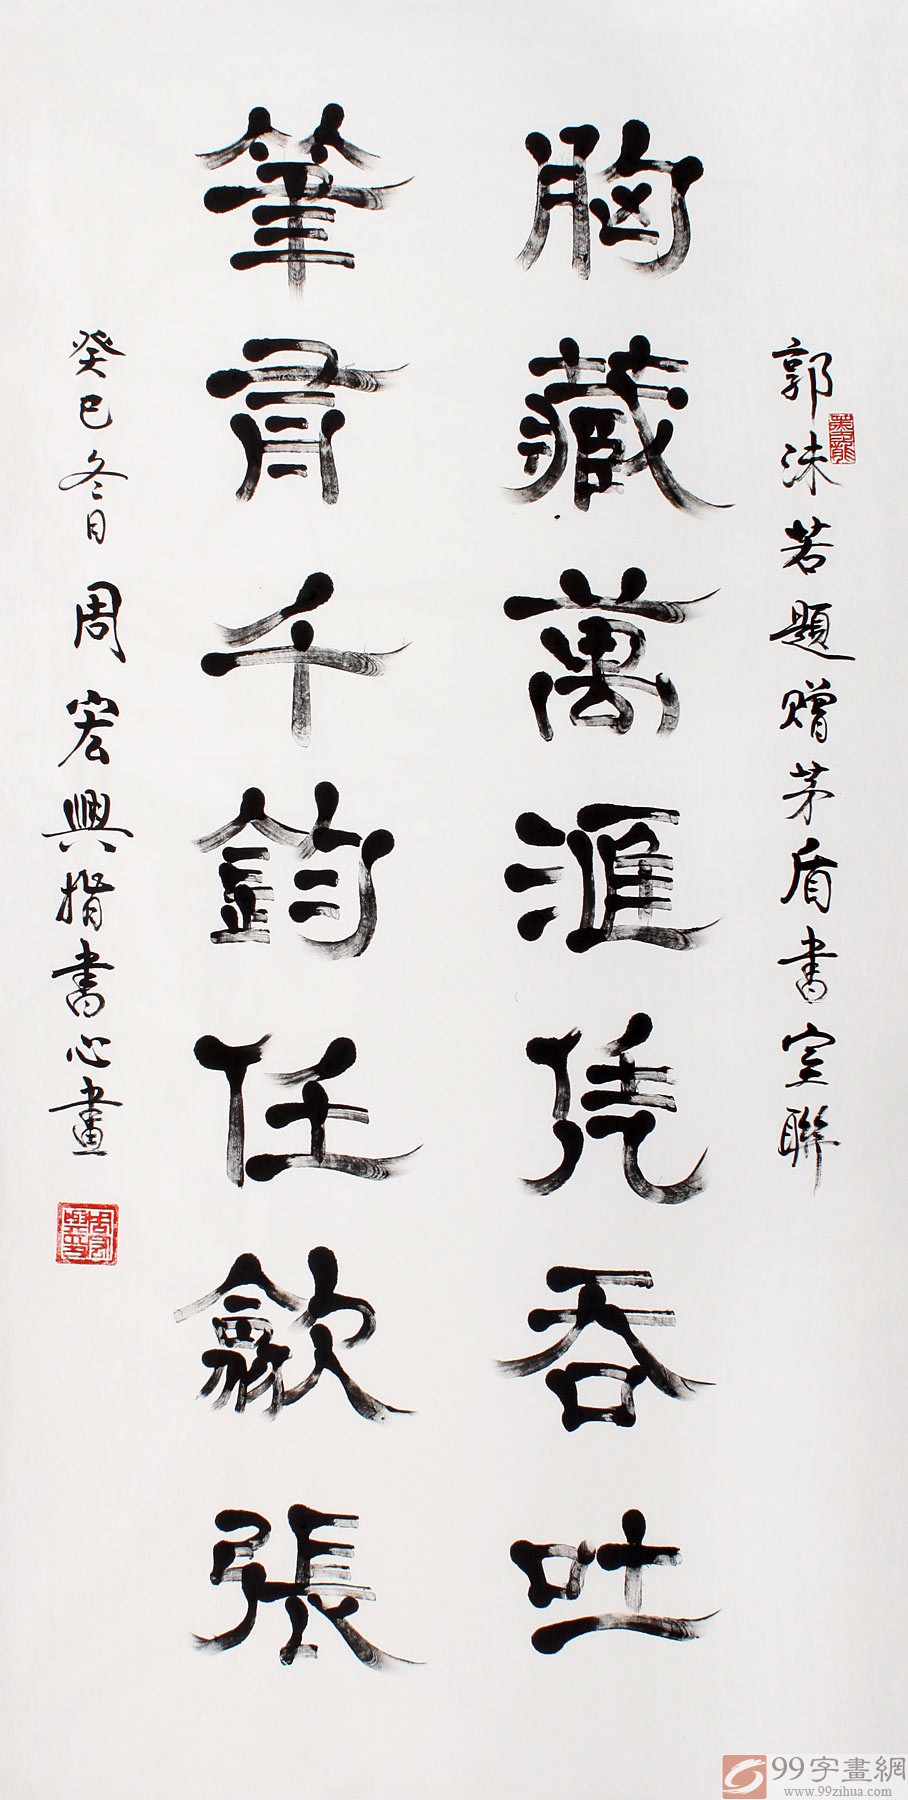 郭沫若題贈茅盾書室聯
胸藏萬滙凭吞吐
筆有千鈞任歙張
癸巳冬日周宏興指書心畫
99字畫網
www.99zihua.com